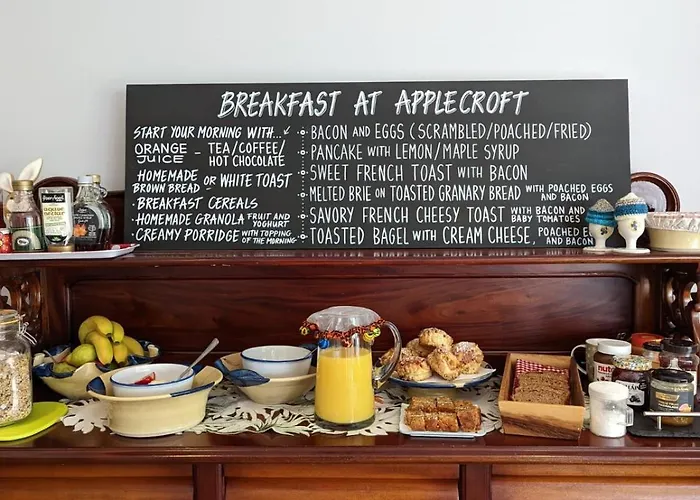 BREAKFAST AT APPLECROFT
START YOUR MORNING WITH...
ORANGE JUICE - TEA/COFFEE/
HOT CHOCOLATE
HOMEMADE
BROWN BREAD OR WHITE TOAST
• BREAKFAST CEREALS
• HOMEMADE GRANOLA FRUIT AND
YOGHURT
• CREAMY PORRIDGE WITH TOPPING
OF THE MORNING
BACON AND EGGS (SCRAMBLED/POACHED/FRIED)
PANCAKE WITH LEMON/MAPLE SYRUP
SWEET FRENCH TOAST WITH BACON
MELTED BRIE ON TOASTED GRANARY BREAD WITH POACHED EGGS
AND BACON
SAVORY FRENCH CHEESY TOAST WITH BACON AND
BABY TOMATOES
TOASTED BAGEL WITH CREAM CHEESE, POACHED E
AND BACON
nutella